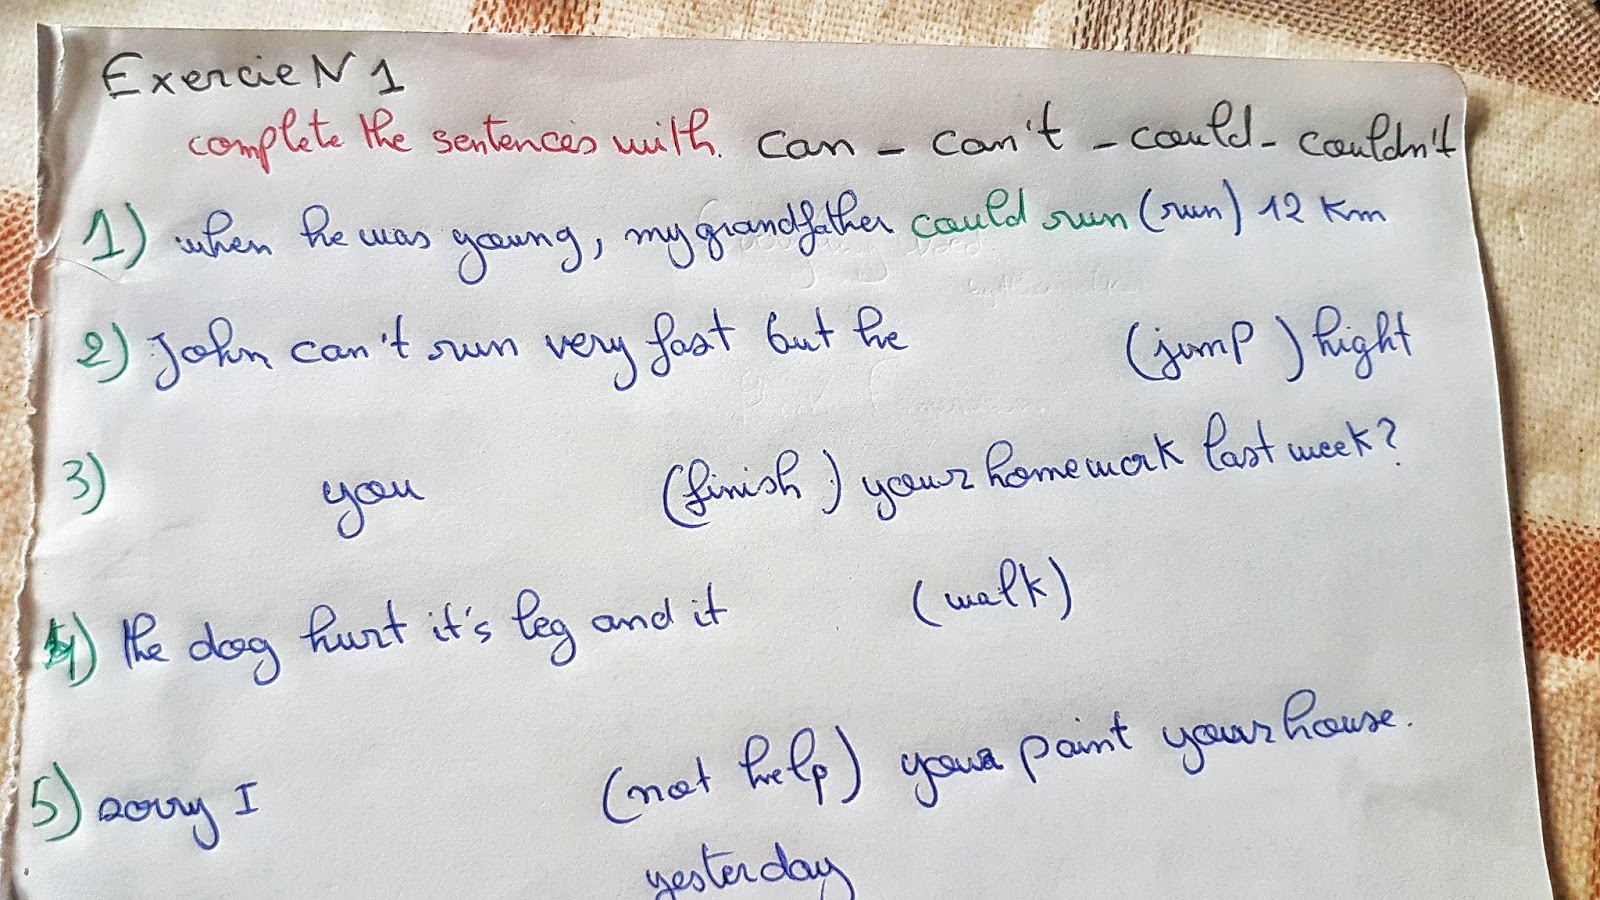 Exercie N 1
complete the sentences with. can - can't - could - couldn't
1) when he was young, my grandfather could run (run) 12 Km
2) John can't run very fast but he (jump) hight
3) you (finish) your homework last week?
4) the dog hurt it's leg and it (walk)
5) sorry I (not help) you paint your house.
yesterday